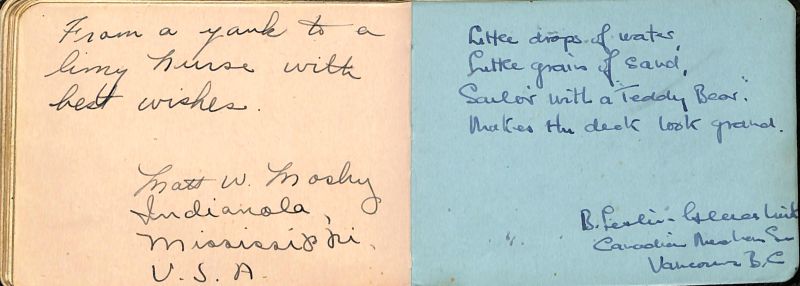 From a yank to a
limy nurse with
best wishes.
Matt W. Mosby
Indianola,
Mississippi.
U.S.A.
Little drops of water,
Little grains of sand,
Sailor with a "Teddy Bear".
Makes the deck look grand.
B. Leslie-
Canadian
Vancouver B.C